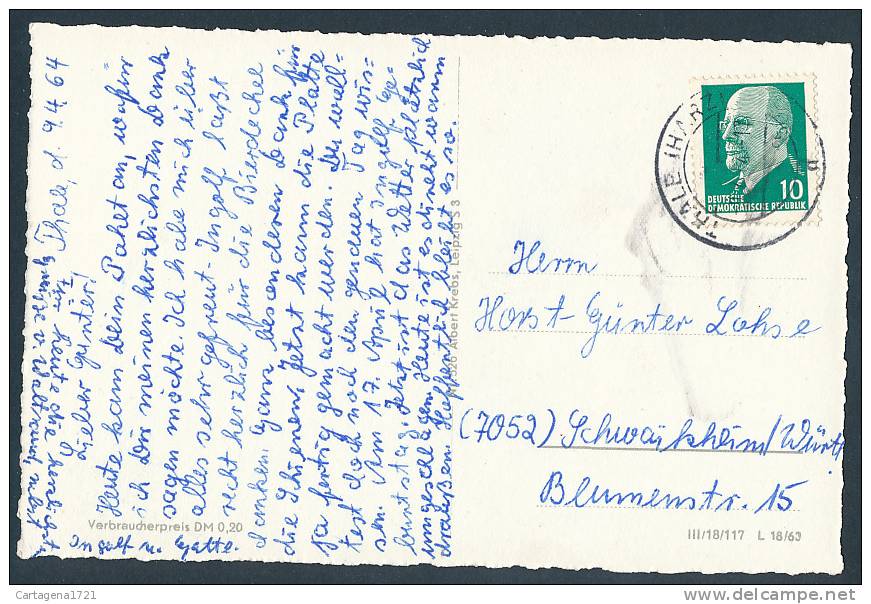 Thale, d. 9.4.64
Lieber Günter!
Heute kam Dein Paket an, wofür
ich Dir meinen herzlichsten Dank
sagen möchte. Ich habe mich über
alles sehr gefreut. Ingolf läßt
recht herzlich für die Bierdeckel
danken. Ganz besonderen Dank für
die Schienen, jetzt kann die Platte
ja fertig gemacht werden. Du woll-
test doch noch den genauen Tag wis-
sen. Am 17. April hat Ingolf Ge-
burtstag. Jetzt ist das Wetter plötzlich
umgeschlagen. Heute ist es direkt warm
draußen. Hoffentlich bleibt es so.
Für heute die herzlichst.
Grüße v. Waltraud, nebst
Ingolf u. Gatte.
Verbraucherpreis DM 0,20
Albert Krebs, Leipzig S 3
THALE (HARZ)
10
DEUTSCHE
DEMOKRATISCHE REPUBLIK
Herrn
Horst-Günter Lohse
(7052) Schwaikheim/Württ
Blumenstr. 15
III/18/117 L 18/63
Cartagena1721
delcampe.net